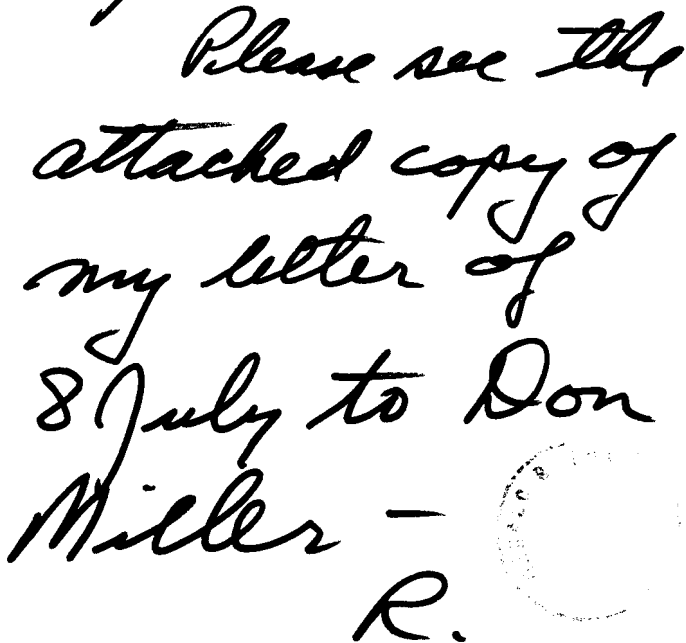 Please see the
attached copy of
my letter of
8 July to Don
Miller –
R.